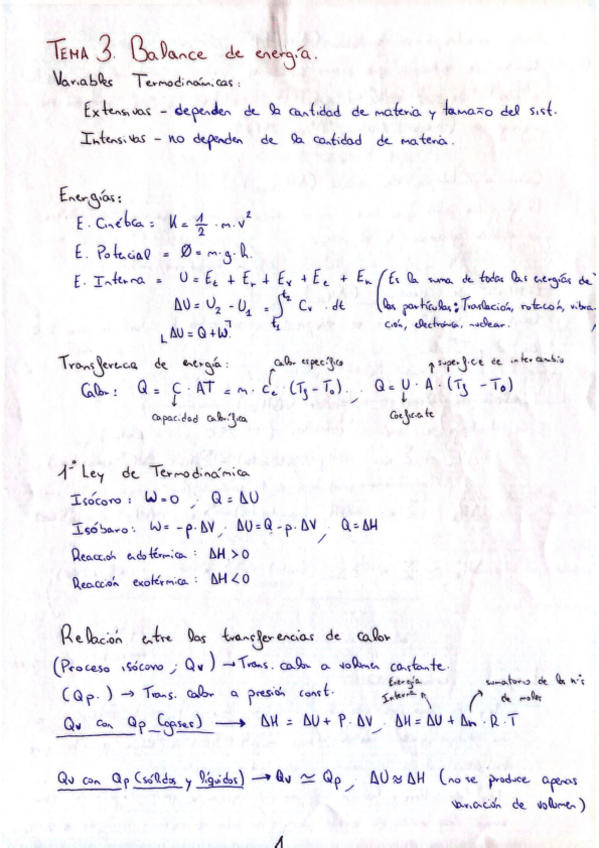 TEMA 3. Balance de energía.
Variables Termodinámicas:
Extensivas - dependen de la cantidad de materia y tamaño del sist.
Intensivas - no dependen de la cantidad de materia.
Energías:
E. Cinética = K = 1/2 · m · v²
E. Potencial = Ø = m·g·h.
E. Interna = U = Et + Er + Ev + Ee + En (Es la suma de todas las energías de
las partículas: Traslación, rotación, vibra-
ción, electrónica, nuclear.
ΔU = U2 - U1 = ∫t1^t2 Cv · dt
ΔU = Q + W
Transferencia de energía:
calor específico
superficie de intercambio
Calor: Q = C · ΔT = m · ce · (Tf - To) ; Q = U · A · (Tf - To)
capacidad calorífica
Coeficiente
1ª Ley de Termodinámica
Isócoro: W = 0 ; Q = ΔU
Isóbaro: W = -p·ΔV ; ΔU = Q - p·ΔV ; Q = ΔH
Reacción endotérmica: ΔH > 0
Reacción exotérmica: ΔH < 0
Relación entre las transferencias de calor
(Proceso isócoro ; Qv) → Trans. calor a volumen constante.
(Qp.) → Trans. calor a presión const.
Energía Interna
sumatorio de los nºs de moles
Qv con Qp (gases) → ΔH = ΔU + P·ΔV ; ΔH = ΔU + Δn · R · T
Qv con Qp (sólidos y líquidos) → Qv ≃ Qp ; ΔU ≈ ΔH (no se produce apenas
variación de volumen)
1